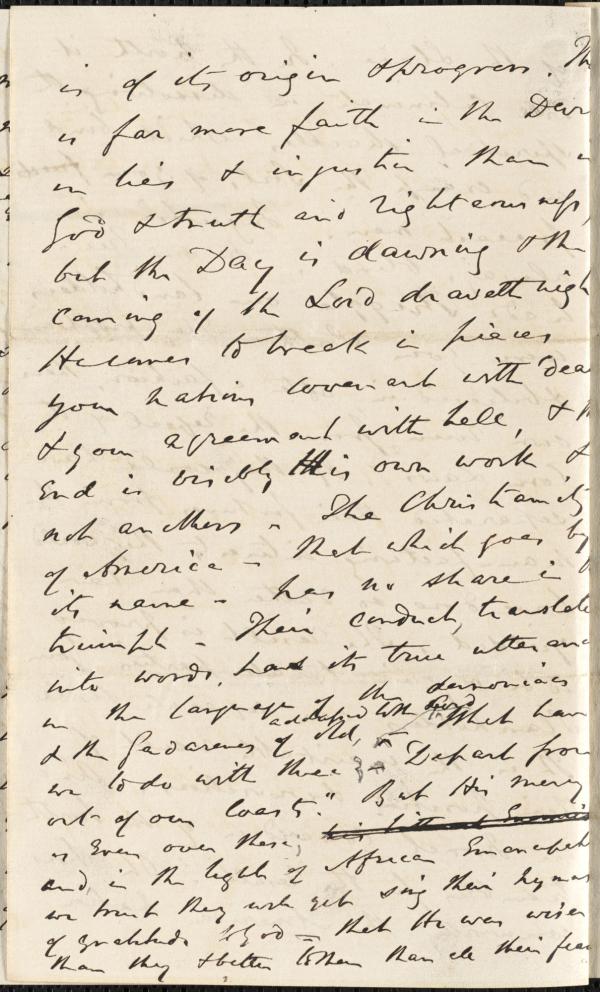 is of its origin & progress. Th
is far more faith in the Devi
in lies & injustice than i
God & truth and righteousness,
but the Day is dawning & the
coming of the Lord draweth nigh
He comes to break in pieces
your nations covenant with dea
& your agreement with hell, & th
End is visibly His own work &
not anothers - The Christianity
of America - that which goes by
its name - has no share in
triumph - Their conduct, translate
into words, has its true utteranc
in the language of the demoniacs
& the Gadarenes of old, addressed to the Lord "What have
we to do with thee" - "Depart from
out of our Coasts." But His mercy
is Even over these;
and in the light of African Emancipat
we trust they will yet sing their hymns
of gratitude to God - that He was wiser
than they & better to them than all their fear